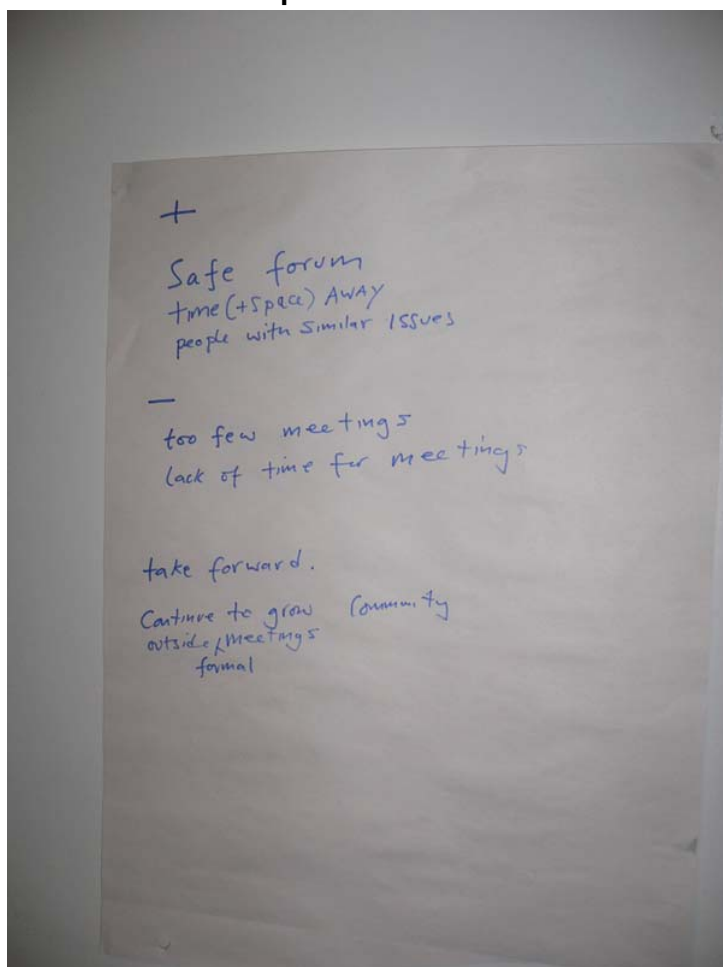 +
Safe forum
time (+space) AWAY
people with similar issues
—
too few meetings
lack of time for meetings
take forward.
Continue to grow community
outside formal meetings